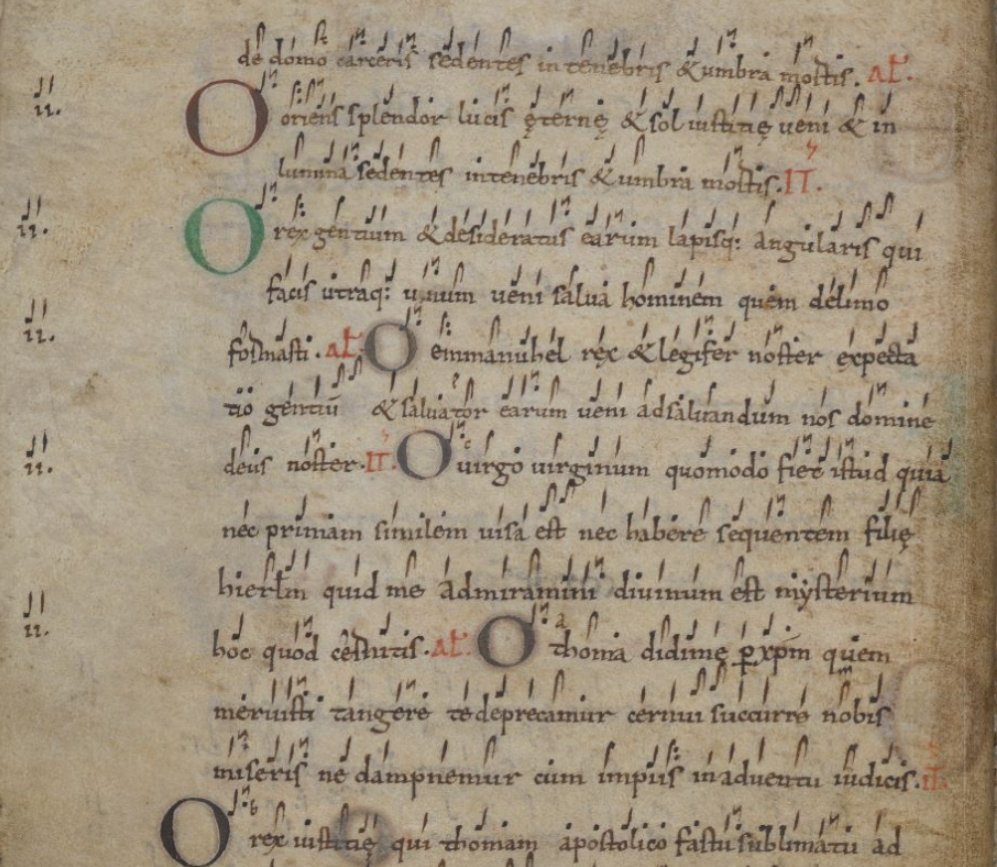 de domo carceris sedentes in tenebris & umbra mortis. AL.
O oriens splendor lucis ęternę & sol iustitię ueni & in
lumina sedentes in tenebris & umbra mortis. IT.
O rex gentium & desideratus earum lapisq: angularis qui
facis utraq: unum ueni salua hominem quem de limo
formasti. AL. O emmanuhel rex & legifer noster expecta
tio gentiū & saluator earum ueni ad saluandum nos domine
deus noster. IT. O uirgo uirginum quomodo fiet istud quia
nec primam similem uisa est nec habere sequentem filię
hierłm quid me admiramini diuinum est mysterium
hoc quod cernitis. AL. O thoma didime ꝑ xp̄m quem
meruisti tangere te deprecamur cernui succurre nobis
miseris ne dampnemur cum impiis in aduentu iudicis. IT.
O rex iustitię qui thomam apostolico fastu sublimatū ad